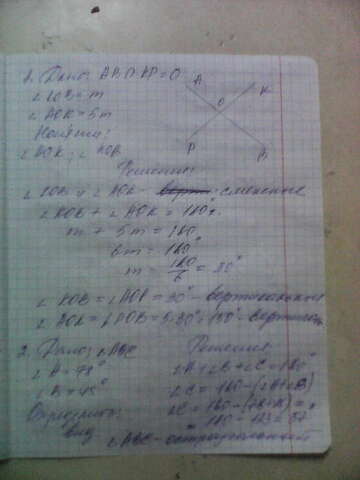 1. Дано: AB ∩ KP = O
∠KOB = m
∠AOK = 5m
Найти:
∠AOK, ∠KOB
Решение
∠KOB и ∠AOK - смежные
∠KOB + ∠AOK = 180°
m + 5m = 180
6m = 180°
m = 180/6 = 30°
∠KOB = ∠AOP = 30° - вертикальные
∠AOK = ∠POB = 5·30 = 150° -
2. Дано: ∠ABC Решение
∠A = 78° ∠A + ∠B + ∠C = 180°
∠B = 45° ∠C = 180 - (∠A + ∠B)
∠C = 180 -
вид 180 - 123 = 57
ABC - остроугольный
A
K
O
P
B